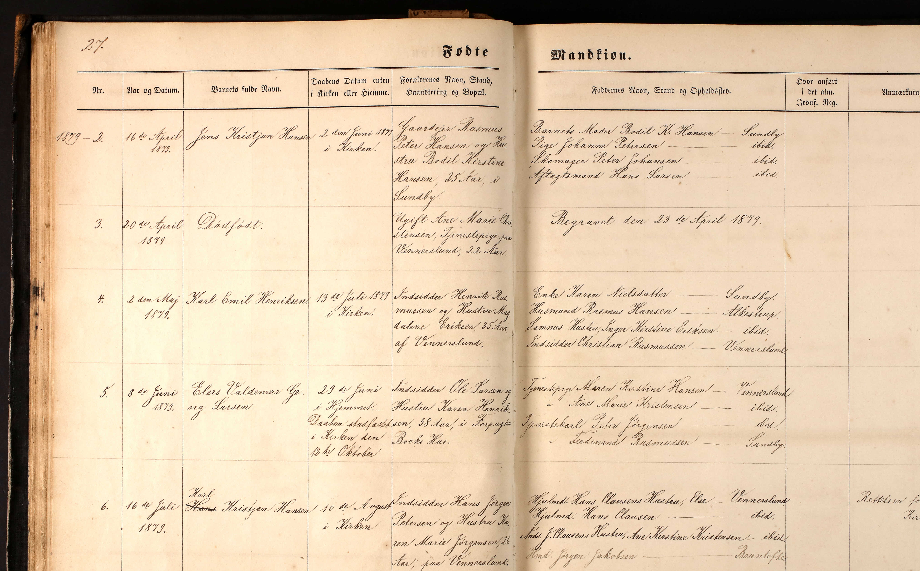 27.
Fødte
Mandkjøn.
Nr.
Aar og Datum.
Barnets fulde Navn.
Daabens Datum enten
i Kirken eller Hjemme.
Forældrenes Navn, Stand,
Haandtering og Bopæl.
Faddernes Navn, Stand og Opholdssted.
Hvor anført
i det alm.
Jevnf. Reg.
1879 - 2.
16 de April
1879.
Jens Kristjan Hansen
2 den Juni 1879
i Kirken.
Gaardejer Rasmus
Peter Hansen og Hu-
stru Bodil Kirstine
Hansen, 25 Aar, i
Sundby
Barnets Moder Bodil K. Hansen — Sundby
Pige Johanne Petersen — ibid.
Skomager Peter Johansen — ibid.
Aftægtsmand Hans Larsen — ibid.
3.
20 de April
1879
Dødfødt.
Ugift Ane Marie
Tjenestepige, paa
Vennerslund, 22 Aar
Begravet den 23 de April 1879.
4.
2 den Maj
1879.
Karl Emil Henriksen
13 de Juli 1879
i Kirken.
Indsidder Henrik Ras-
mussen og Hustru Mag-
dalene Eriksen 25 Aar
af Vennerslund.
Enke Karen Nielsdatter — Sundby.
Husmand Rasmus Hansen —
Sammes Hustru, Inger Kirstine Eriksen — ibid.
Indsidder Christian Rasmussen — Vennerslund
5.
8 de Juni
1879.
Valdemar Ge-
org Larsen
29 de Juni
i Hjemmet.
Daaben stadfæstet
i Kirken den
Oktober
Indsidder Ole Larsen og
Hustru Karen Henrik-
sen, 38 Aar, i
Tjenestepige Maren Kirstine Hansen — Vennerslund
" Ane Marie Kristensen — ibid.
Tjenestekarl Peter Jörgensen — ibid.
" Ferdinand Rasmussen — Sundby.
6.
16 de Juli
1879.
Karl
Hans Kristjan Hansen
10 de August
i Kirken
Indsidder Hans Jörgen
Petersen og Hustru Ka-
ren Marie Jörgensen, 26
Aar, paa Vennerslund.
Hjulmd. Hans Clausens Hustru, Else — Vennerslund
Hjulmd. Hans Clausen — ibid.
J. Clausens Hustru, Ane Kirstine Kristensen — ibid.
Jörgen Jakobsen —